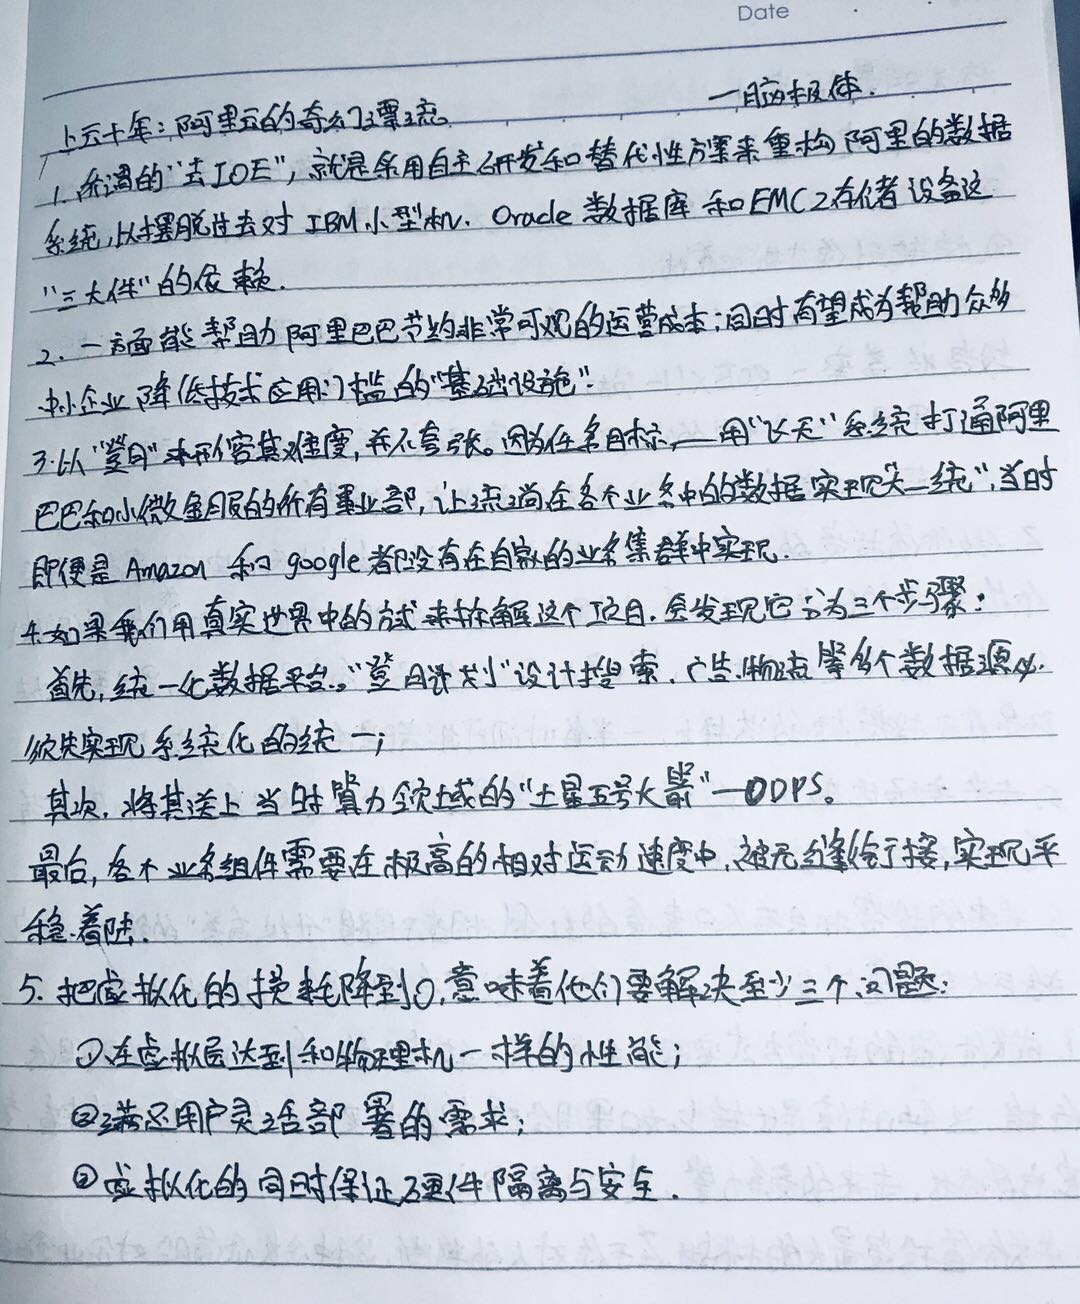 Date
上云十年:阿里云的奇幻漂流。 —脑极体.
1. 所谓的“去IOE”,就是采用自主研发和替代性方案来重构阿里的数据
系统,以摆脱过去对IBM小型机、Oracle数据库和EMC2存储设备这
“三大件”的依赖.
2. 一方面能帮助阿里巴巴节约非常可观的运营成本;同时有望成为帮助众多
中小企业降低技术应用门槛的“基础设施”.
3.以“登月”来形容其难度,并不夸张。因为任务目标,——用“飞天”系统打通阿里
巴巴和小微金服的所有事业部,让流淌在各个业务中的数据实现“大一统”,当时
即便是Amazon和google都没有在自家的业务集群中实现.
4.如果我们用真实世界中的方式来拆解这个项目.会发现它分为三个步骤:
首先,统一化数据平台。“登月计划”设计搜索、广告、物流等多个数据源必
须先实现系统化的统一;
其次,将其送上当时算力领域的“土星五号火箭”—ODPS。
最后,各个业务组件需要在极高的相对运动速度中,被无缝衔接,实现平
稳着陆.
5. 把虚拟化的损耗降到0,意味着他们要解决至少三个问题:
①在虚拟层达到和物理机一样的性能;
②满足用户灵活部署的需求;
③虚拟化的同时保证硬件隔离与安全.